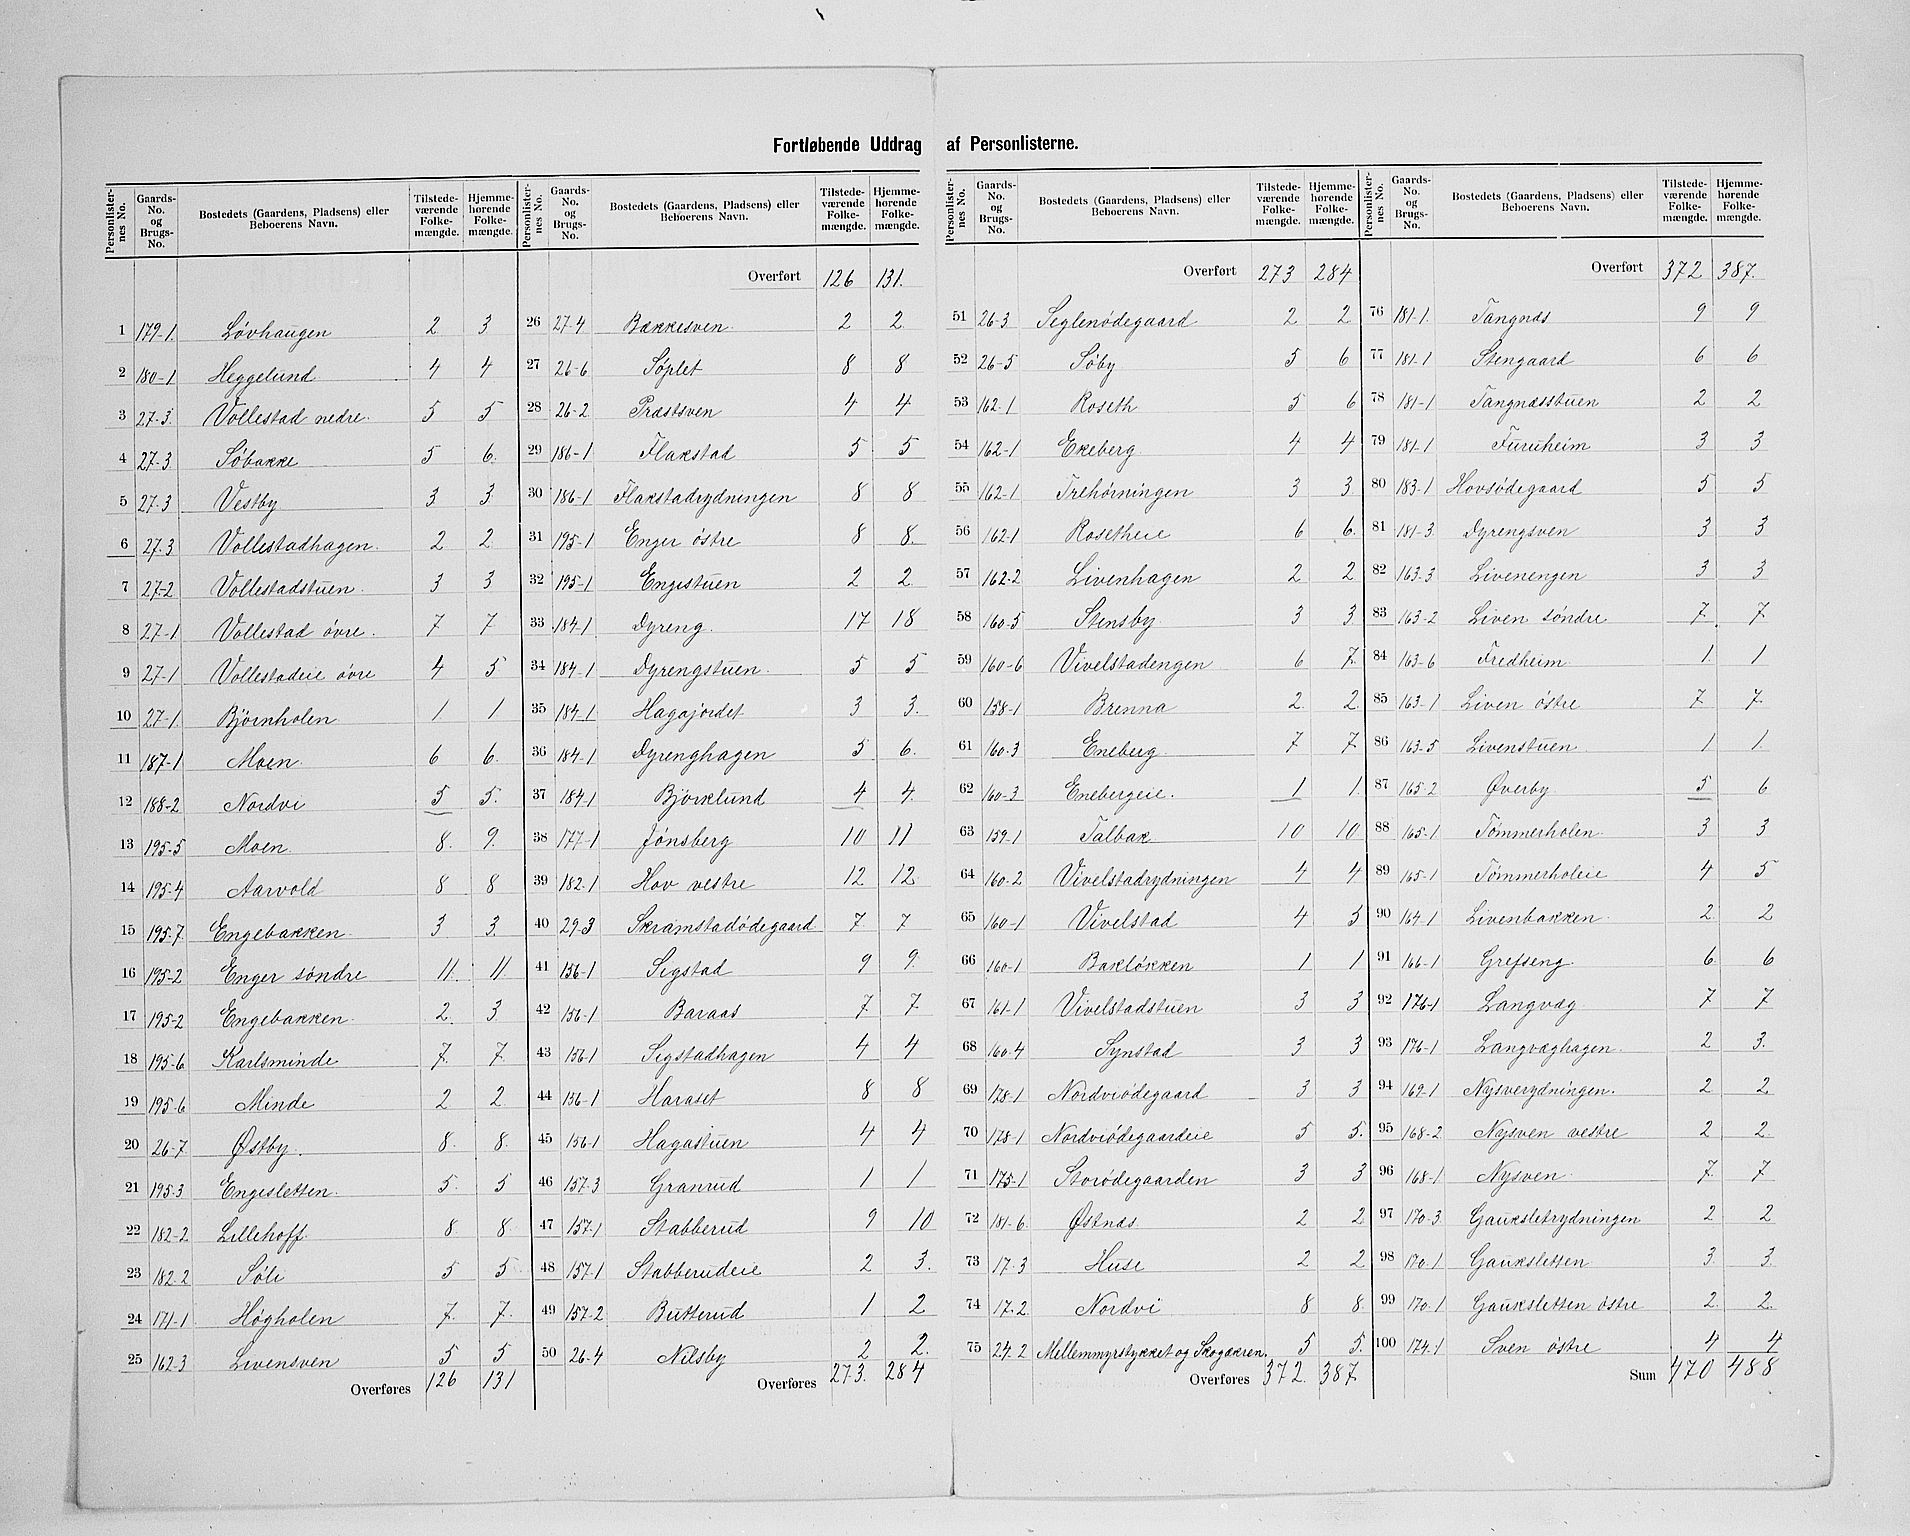 Fortløbende Uddrag af Personlisterne.
Personlisternes No. Gaards-No. og Brugs-No. Bostedets (Gaardens, Pladsens) eller Beboerens Navn. Tilstedeværende Folkemængde. Hjemmehørende Folkemængde.
1 179-1. Løvhaugen 2 3
2 180-1 Heggelund 4 4
3 27-3. Vollestad nedre. 5 5
4 27-3 Søbakke 5 6.
5 27-3 Vestby 3 3
6 27-3 Vollestadhagen. 2 2
7 27-2 Vollestadstuen. 3 3
8 27-1 Vollestad øvre. 7 7
9 27-1 Vollestadeie øvre 4 5
10 27-1. Bjørnholen 1 1
11 187-1 Moen. 6 6.
12 188-2 Nordvi 5 5.
13 195-5 Moen. 8. 9.
14 195-4 Aarvold 8 8
15 195-7. Engebakken. 3 3.
16 195-2 Enger søndre 11. 11.
17 195-2 Engebakken. 2. 3
18 195-6 Karlsminde 7. 7.
19 195-6 Minde 2 2.
20 26-7. Østby. 8. 8.
21 195-3 Engesletten. 5. 5
22 182-2 Lillehoff. 8 8
23 182-2 Søli 5 5
24 171-1 Høgholen 7. 7.
25 162-3 Livensven 5 5
Overføres 126 131
Personlisternes No. Gaards-No. og Brugs-No. Bostedets (Gaardens, Pladsens) eller Beboerens Navn. Tilstedeværende Folkemængde. Hjemmehørende Folkemængde.
Overført 126 131.
26 27-4 Bækkesven. 2 2
27 26-6 Søplet 8 8
28 26-2 Præstsven 4 4
29 186-1 Flakstad 5 5
30 186-1 Flakstadrydningen 8 8
31 195-1 Enger østre 8 8.
32 195-1 Engistuen 2 2.
33 184-1 Dyreng. 17 18
34 184-1 Dyrengstuen. 5 5
35 184-1 Hagajordet 3 3.
36 184-1 Dyrenghagen 5 6.
37 184-1 Bjørklund 4 4.
38 177-1 Jønsberg 10 11
39 182-1 Hov vestre 12 12
40 29-3 Skramstadødegaard 7 7
41 156-1 Sigstad 9 9.
42 156-1 Baraas 7 7
43 156-1 Sigstadhagen 4 4
44 156-1 Haraset 8 8
45 156-1 Hagastuen 4 4
46 157-3 Granrud 1 1
47 157-1 Stabberud 9 10
48 157-1 Stabberudeie 2 3.
49 157-2 Butterud 1 2
50 26-4 Nilsby 2 2.
Overføres 273. 284
Personlisternes No. Gaards-No. og Brugs-No. Bostedets (Gaardens, Pladsens) eller Beboerens Navn. Tilstedeværende Folkemængde. Hjemmehørende Folkemængde.
Overført 273 284
51 26-3 Seglenødegaard 2 2
52 26-5 Søby 5 6
53 162-1 Roseth 5 6
54 162-1 Ekeberg. 4 4
55 162-1 Trehørningen 3 3
56 162-1 Rosetheie 6 6.
57 162-2 Livenhagen 2 2
58 160-5 Stensby. 3 3
59 160-6 Vivelstadengen 6 7.
60 158-1 Brenna 2. 2.
61 160-3 Eneberg. 7 7
62 160-3 Enebergeie. 1 1.
63 159-1 Talbak 10 10
64 160-2 Vivelstadrydningen 4 4
65 160-1 Vivelstad 4 5
66 160-1 Bakløkken 1 1
67 161-1 Vivelstadstuen 3 3
68 160-4 Synstad 3 3
69 178-1 Nordviødegaard 3 3
70 178-1 Nordviødegaardeie 5 5.
71 175-1 Storødegaarden 3 3
72 181-6 Østnæs 2 2
73 17-3 Huse 2 2
74 17-2. Nordvi 8 8.
75 24-2 Mellemmyrstykket og Skogækren. 5 5.
Overføres 372. 387.
Personlisternes No. Gaards-No. og Brugs-No. Bostedets (Gaardens, Pladsens) eller Beboerens Navn. Tilstedeværende Folkemængde. Hjemmehørende Folkemængde.
Overført 372 387.
76 181-1. Tangnæs 9 9
77 181-1 Stengaard 6 6
78 181-1 Tangnæsstuen 2 2
79 181-1 Furuheim 3 3
80 183-1 Hovsødegaard 5 5
81 181-3 Dyrengsven 3 3
82 163-3 Livenengen 3 3
83 163-2 Liven søndre 7. 7.
84 163-6 Fredheim. 1. 1
85 163-1 Liven østre 7 7.
86 163-5 Livenstuen. 1 1.
87 165-2 Øverby. 5 6
88 165-1 Tømmerholen. 3 3
89 165-1 Tømmerholeie 4 5
90 164-1 Livenbakken. 2. 2
91 166-1 Grefseng. 6 6
92 176-1 Langvæg 7 7
93 176-1 Langvæghagen. 2 3.
94 169-1 Nysverydningen. 2 2
95 168-2 Nysven vestre 2 2.
96 168-1 Nysven. 7. 7
97 170-3 Gaukslettrydningen 2 2
98 170-1 Gauksletten. 3. 3.
99 170-1 Gauksletten østre 2. 2.
100 174-1 Sven østre 4 4
Sum 470 488